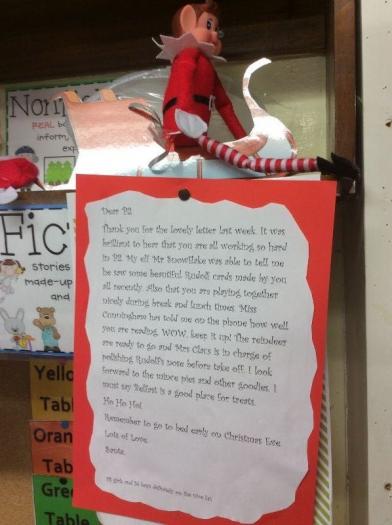 Non
REAL b
inform,
exp
Fic
stories
made-up
and
Yello
Tabl
Oran
Tab
Gree
Table
Dear P2
Thank you for the lovely letter last week. It was
brilliant to hear that you are all working so hard
in P2. My elf Mr Snowflake was able to tell me
he saw some beautiful Rudolf cards made by you
all recently. Also that you are playing together
nicely during break and lunch times. Miss
Cunningham has told me on the phone how well
you are reading. WOW, keep it up! The reindeer
are ready to go and Mrs Claus is in charge of
polishing Rudolf's nose before take off. I look
forward to the mince pies and other goodies. I
must say Belfast is a good place for treats.
Ho Ho Ho!
Remember to go to bed early on Christmas Eve
Lots of Love
Santa.
girls and boys definitely on the nice list